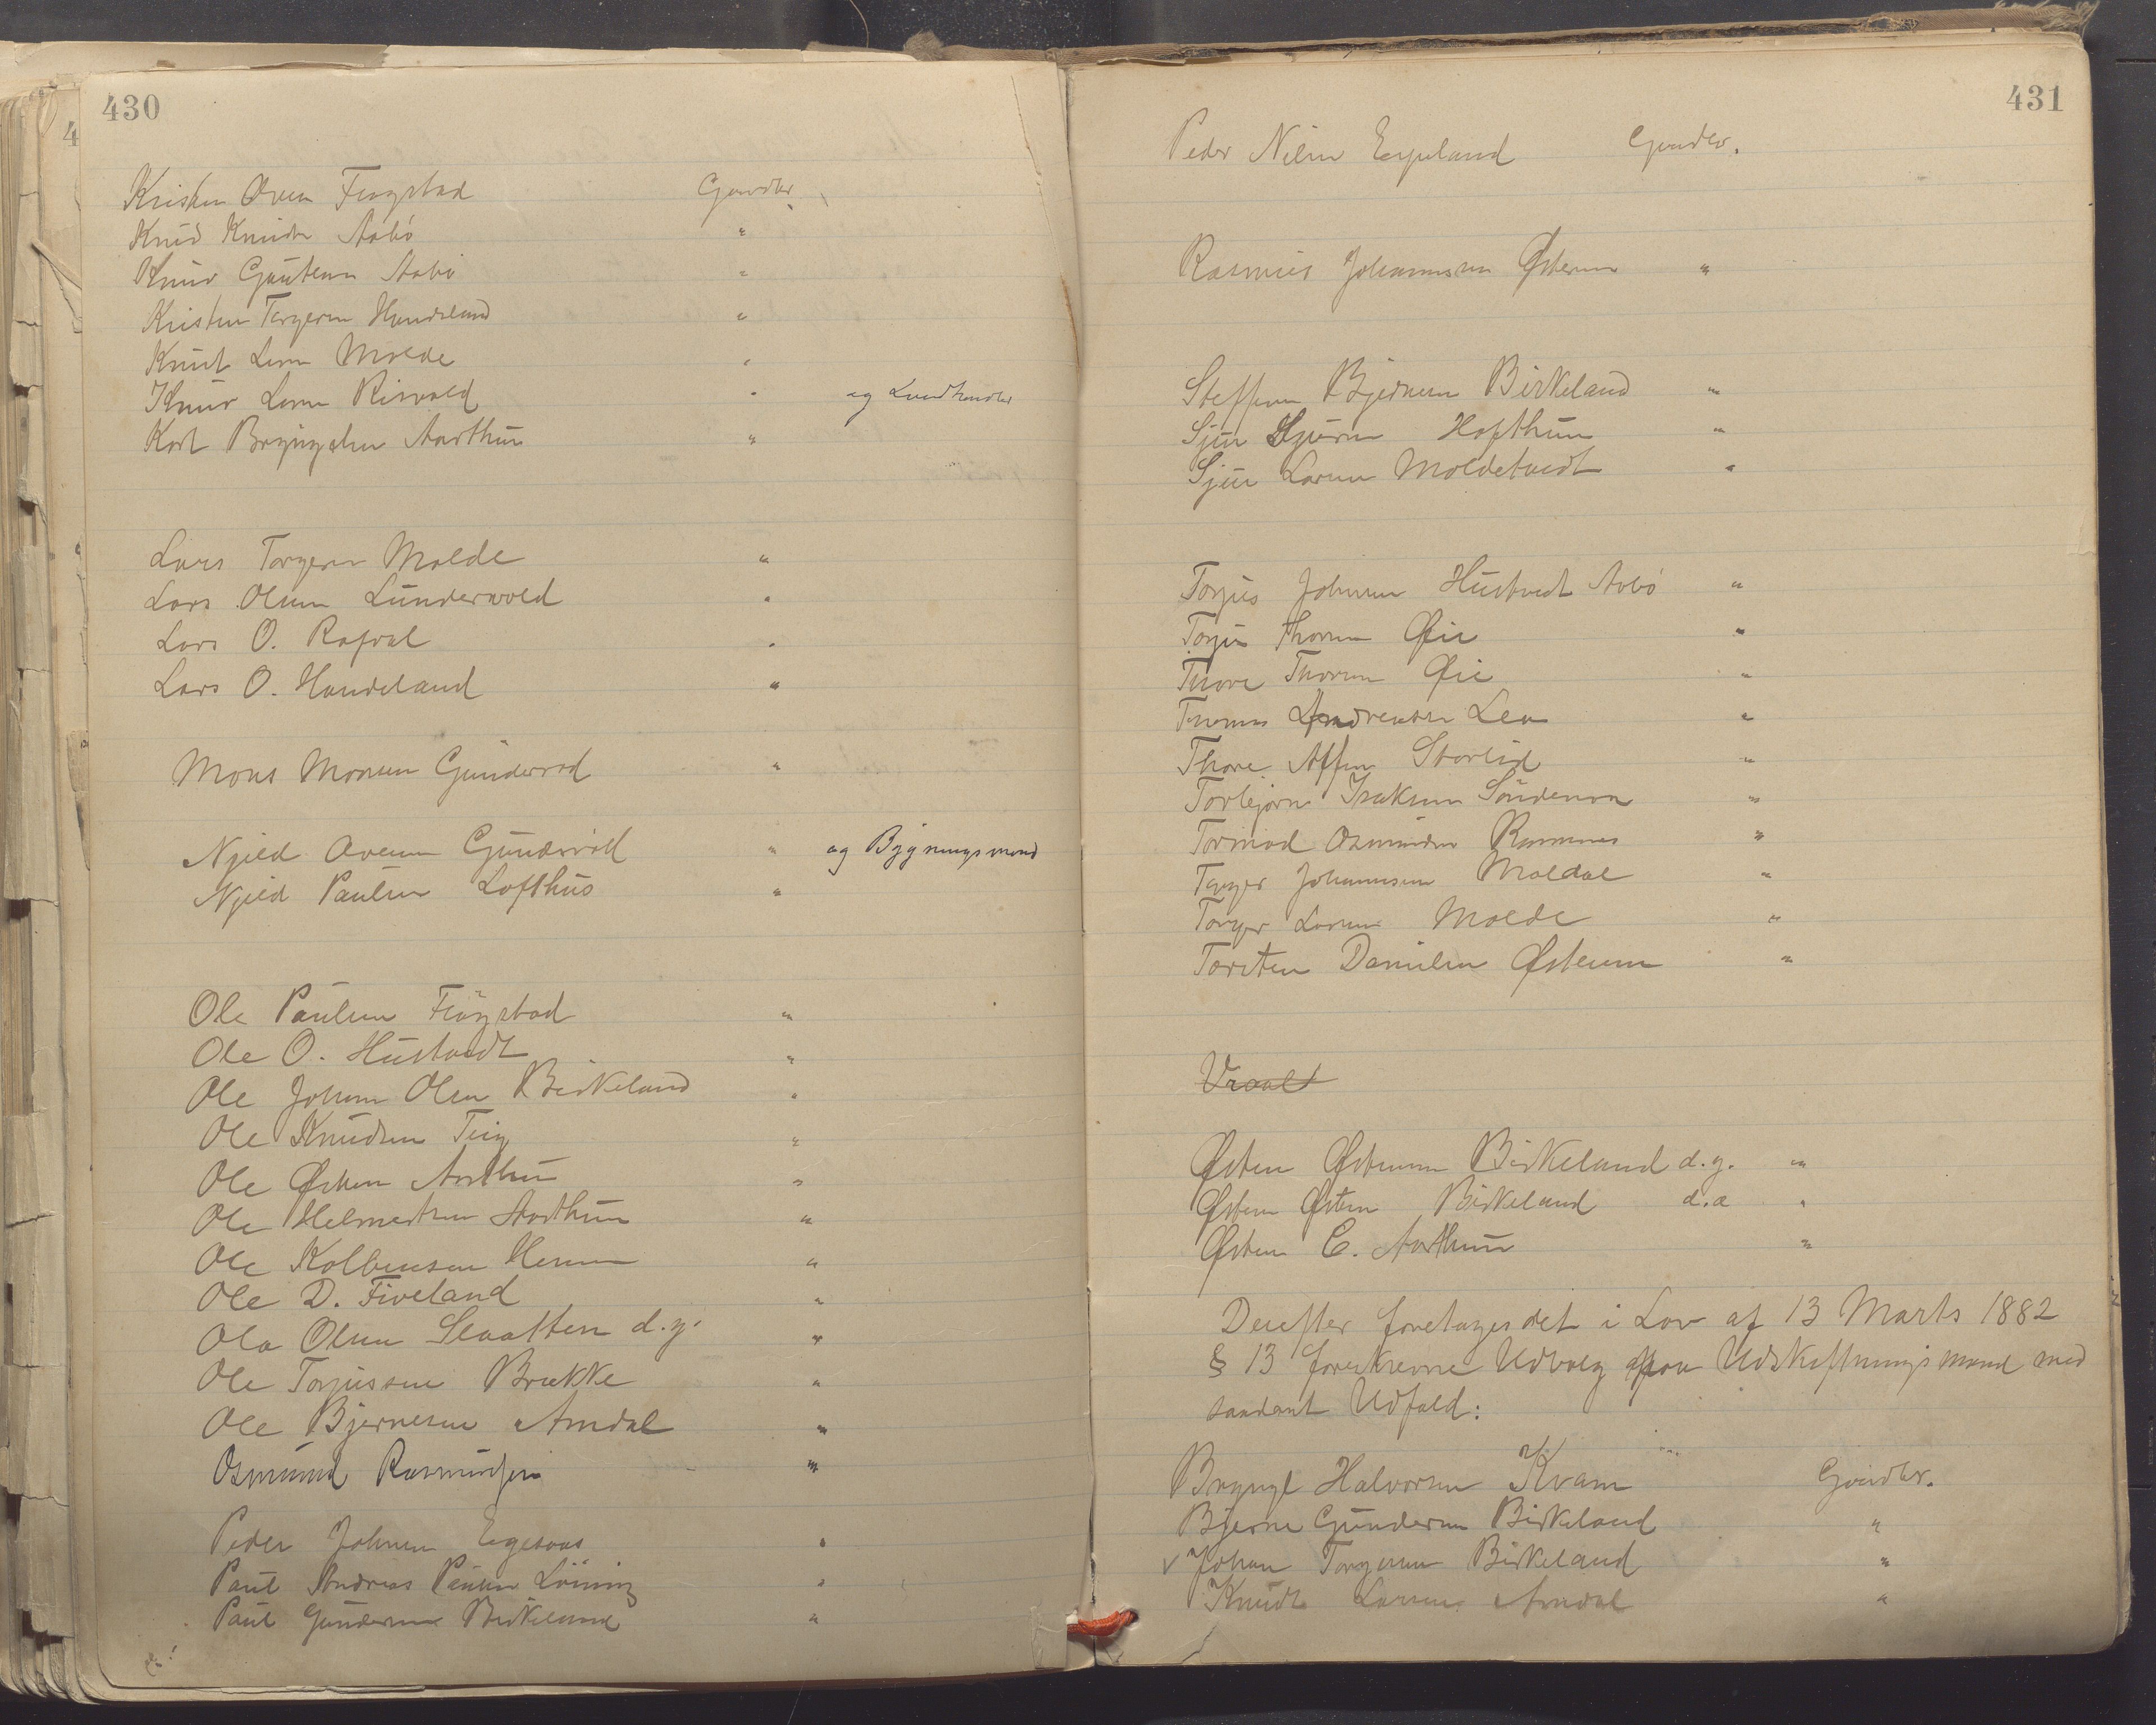 430
Kristen Oven Fiogstad Gaardbr.
Knud Knudsen Aabö "
Knud Gautesen Aabö "
Kristen Torgersen Handeland "
Knut Larsen Molde "
Knud Larsen Risvold " og Landhandler
Kort Bryngelsen Aarthun "
Lars Torgersen Molde "
Lars Olsen Lundervold "
Lars O. Rafoal "
Lars O. Handeland "
Mons Monsen Gundersrød "
Njeld Ovesen Gundersvöd " og Bygningsmand
Njeld Paulsen Lofthus "
Ole Paulsen Fiögstad "
Ole O. Hustvedt "
Ole Johan Olsen Birkeland "
Ole Knudsen Teig "
Ole Østensen Aarthun "
Ole Helmertsen Aarthun "
Ole Kolbensen "
Ole D. Fiveland "
Ola Olsen Slaatten d.y. "
Ole Torjussen Brække "
Ole Bjernesen Amdal "
Osmund Rasmussen "
Peder Johnsen "
Paul Andreas Paulsen Löining "
Paul Gundersen Birkeland "
431
Peder Nilsen Gaardbr.
Rasmus Johannesen Østensen "
Steffen Bjernesen Birkeland "
Sjur Hofthun "
Sjur Larsen Moldetvedt "
Torjus Johnsen Hustvedt Aabö "
Torjus Thorsen Øie "
Thore Thorsen Øie "
Thomas Andreassen Lea "
Thore Storlid "
Torbjørn Isaksen "
Tormod Osmundsen "
Torger Johannesen Moldal "
Torger Larsen Molde "
Torsten Danielsen "
Vraal
Østen Østensen Birkeland d.y. "
Østen Østensen Birkeland d.æ "
Østen C. Aarthun "
Derefter foretages det i Lov af 13 Marts 1882
§ 13 foreskrevne Udvalg paa Udskiftningsmænd med
saadant Udfald:
Bryngel Halvorsen Kvam Gaardbr.
Bjerne Gundersen Birkeland "
v Johan Torgersen Birkeland "
Knudt Larsen Amdal "